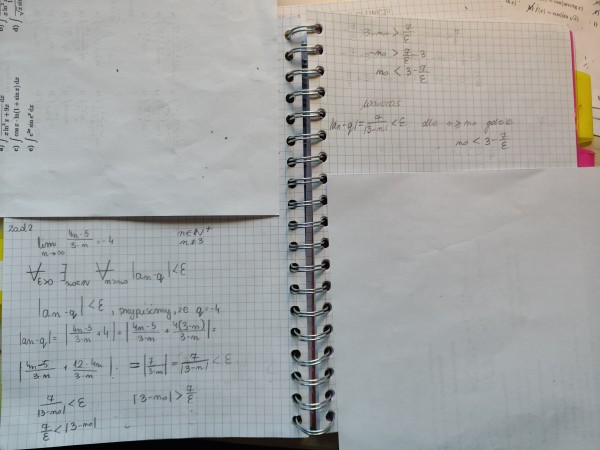 zad 2
lim n→∞ (4n-5)/(3-n) = -4    n∈N⁺ n≠3
∀ε>0 ∃n₀∈N ∀n≥n₀ |an-q|<ε
|an-q|<ε, przypuśćmy, że q=-4
|an-q| = |(4n-5)/(3-n) + 4| = |(4n-5)/(3-n) + 4(3-n)/(3-n)| =
|(4n-5)/(3-n) + (12-4n)/(3-n)| = |7/(3-n)| = 7/|3-n| < ε
7/|3-n₀| < ε    |3-n₀| > 7/ε
7/ε < |3-n₀|
3-n₀ > 7/ε
-n₀ > 7/ε - 3
n₀ < 3 - 7/ε
wówczas
|an-q| = 7/|3-n| < ε dla n≥n₀ gdzie
n₀ < 3 - 7/ε
c) ∫ cos x · ln(1 + sin x) dx
e) ∫ e²ˣ sin eˣ dx